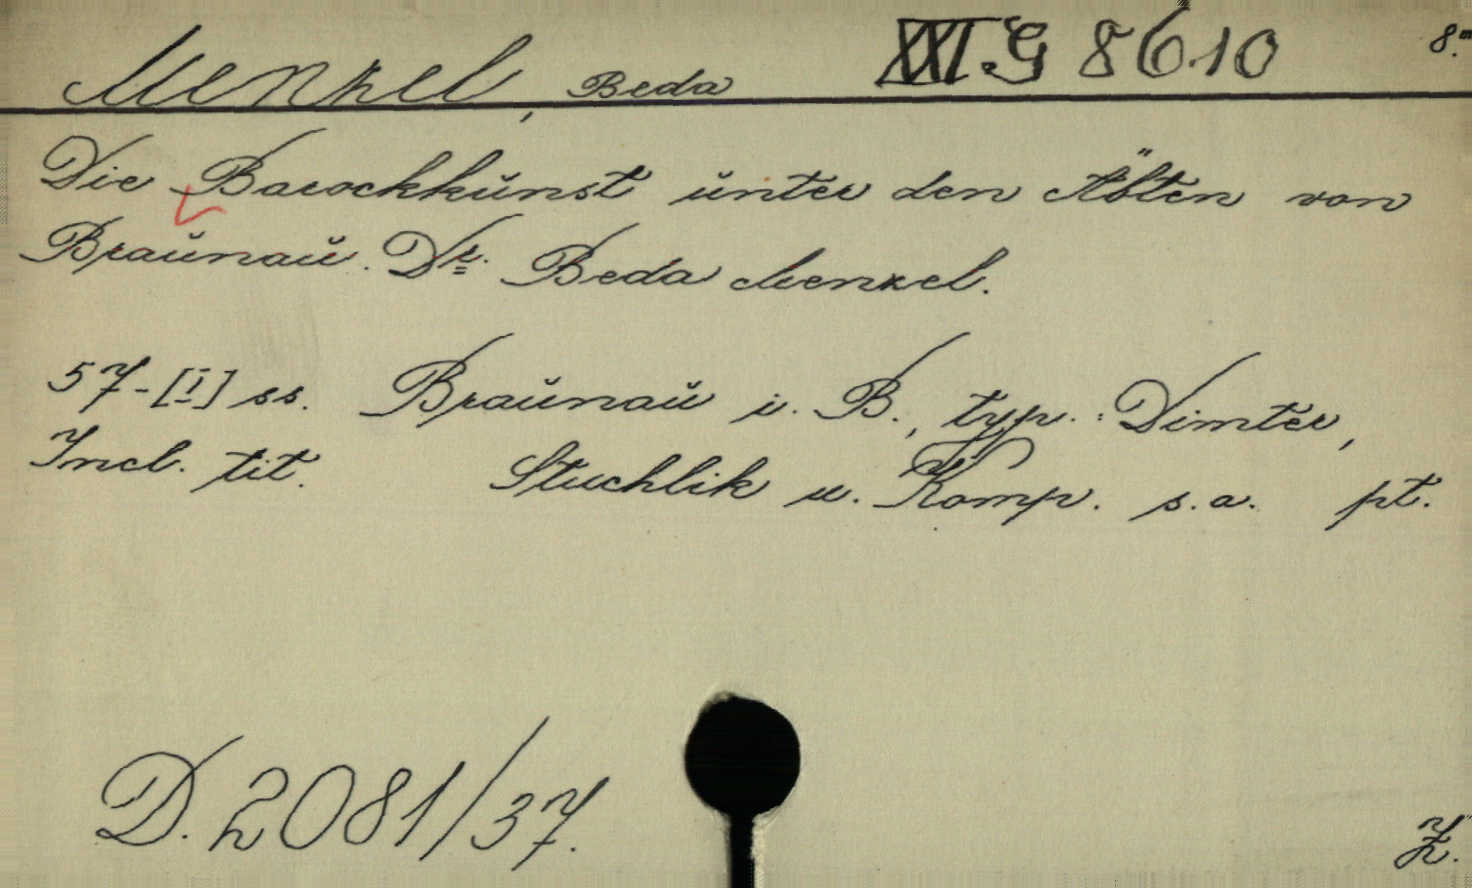 Menzel, Beda XXI.G 8610 8.
Die Barockkunst unter den Äbten von
Braunau. Dr. Beda Menzel.
57-[I] ss. Braunau i. B., typ.: Dimter,
Incl. tit. Stuchlik u. Komp. s.a. pt.
D. 2081/37. Ž.